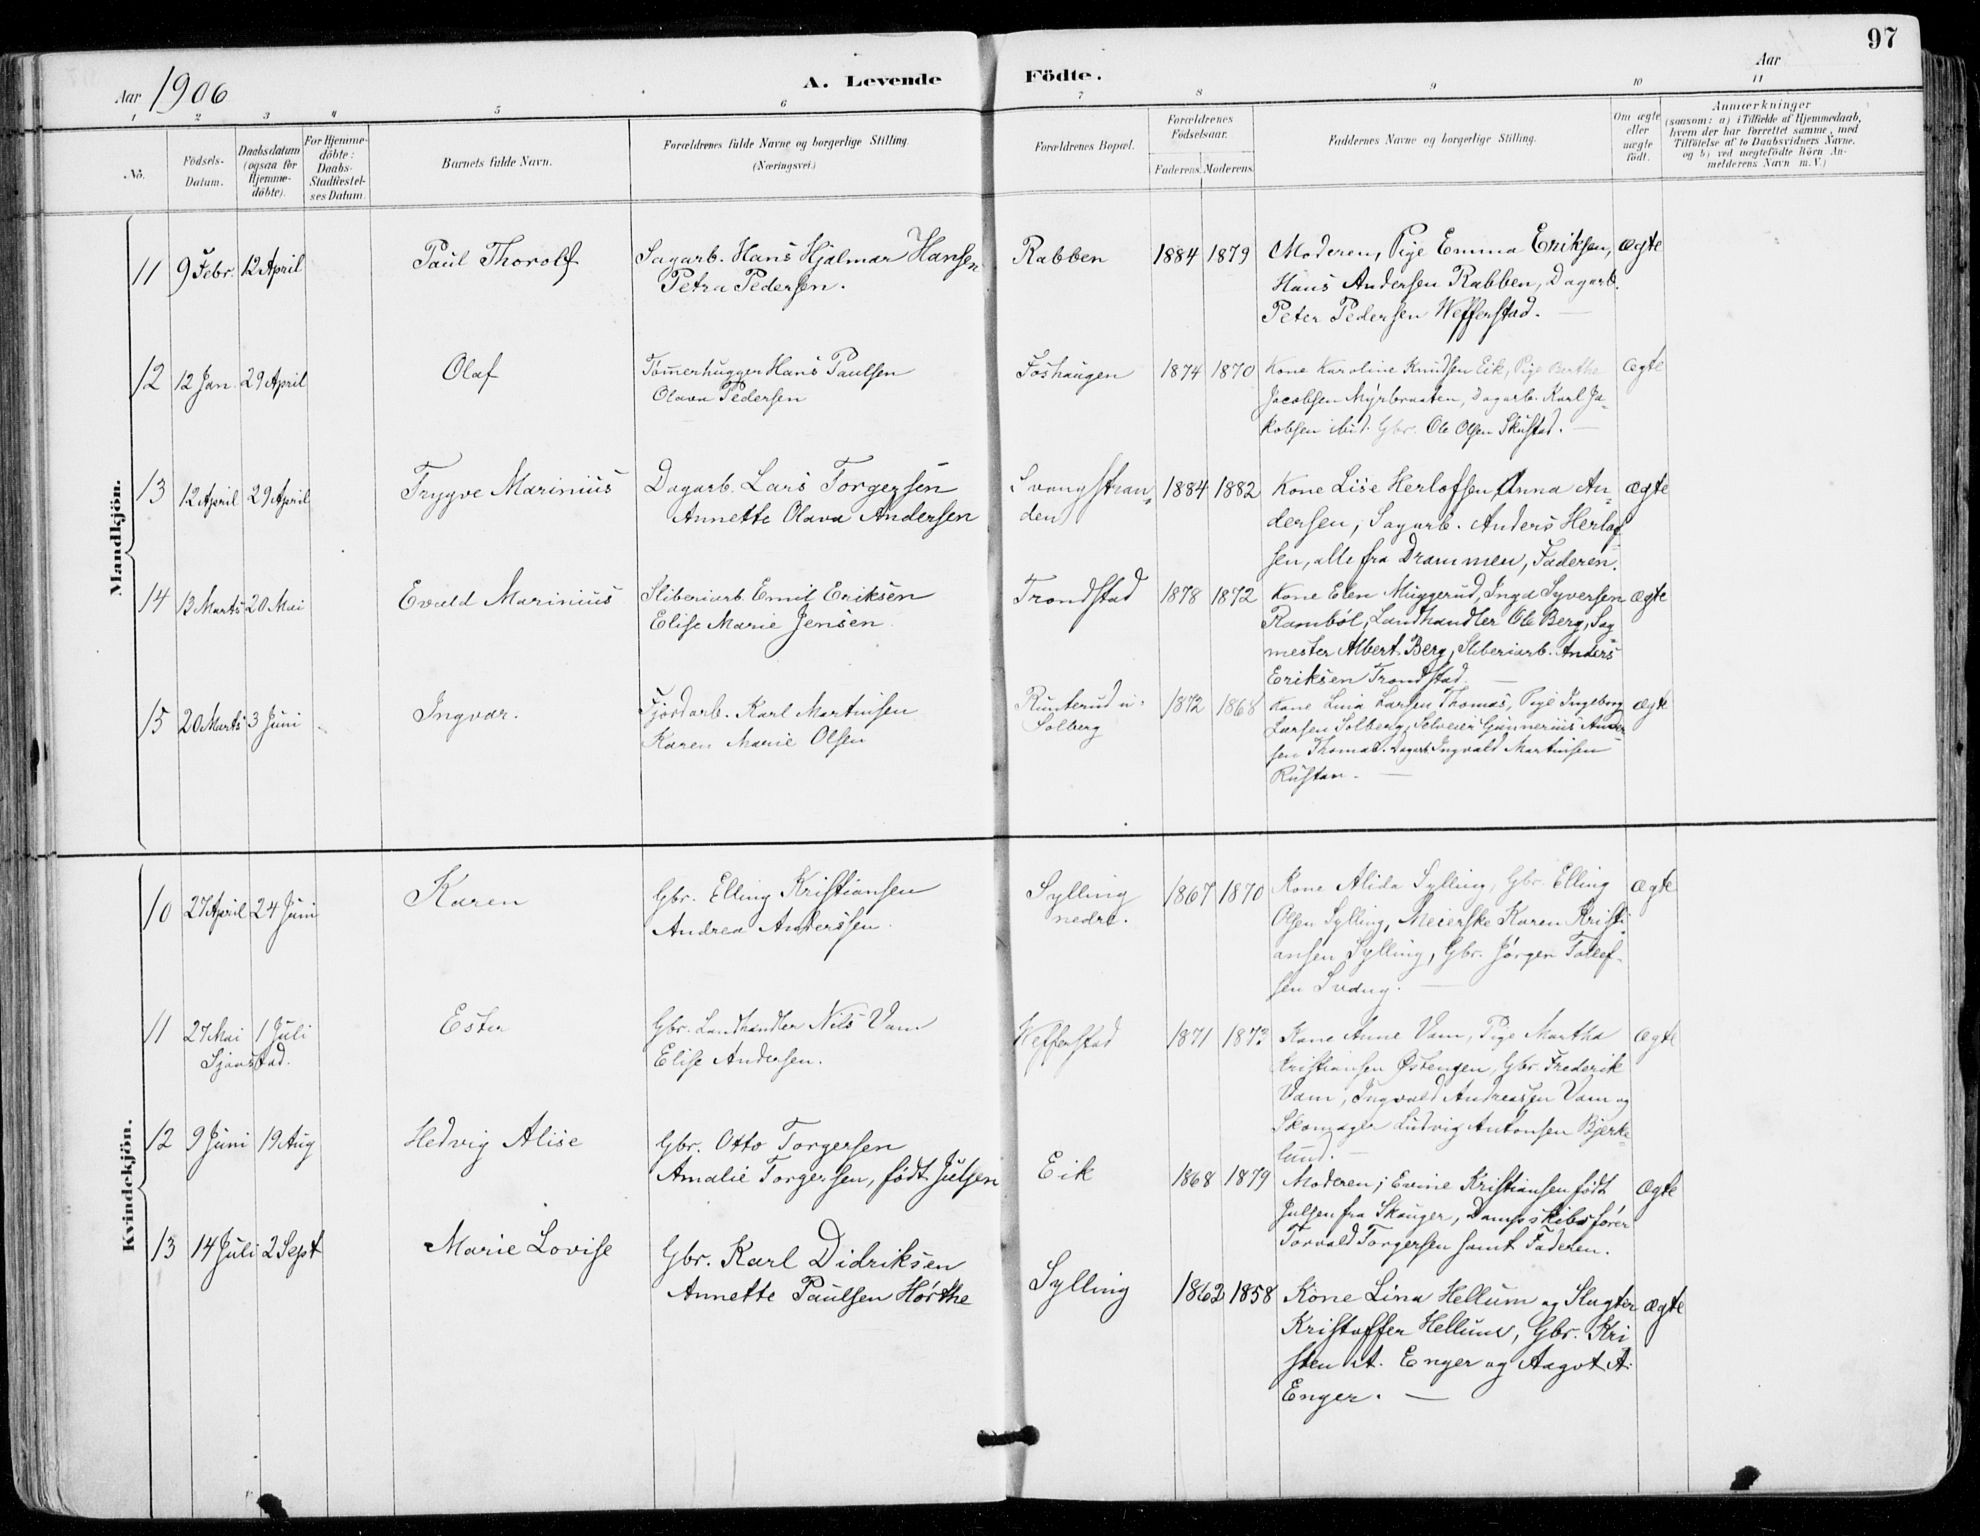 97
Aar 1906
A. Levende Födte.
Aar
1 2 3 4 5 6 7 8 9 10 11
No.
Födsels-Datum.
Daabsdatum (ogsaa for Hjemme-döbte).
For Hjemme-döbte: Daabs-Stadfæstel-ses Datum
Barnets fulde Navn.
Forældrenes fulde Navne og borgerlige Stilling (Næringsvei.)
Forældrenes Bopæl.
Forældrenes Födselsaar.
Faderens. Moderens.
Faddernes Navne og borgerlige Stilling.
Om ægte eller uægte födt.
Anmærkninger
(saasom: a) i Tilfælde af Hjemmedaab,
hvem der har forrettet samme, med
Tilföielse af to Daabsvidners Navne,
og b) ved uægtefödte Börn An-
melderens Navn m. V.)
Mandkjön.
11 9 Febr. 12 April Paul Thorolf Sagarb. Hans Hjalmar Hansen Rabben 1884 1879 Moderen, Pige Emma Eriksen, ægte
Petra Pedersen. Hans Andersen Rabben, Dagarb.
Peter Pedersen Weffenstad.
12 12 Jan. 29 April Olaf Tømerhugger Hans Paulsen Foshaugen 1874 1870 Kone Karoline Knudsen Eik, Pige Berthe ægte
Olava Pedersen Jacobsen Myrbraaten, Dagarb. Karl Ja-
kobsen ibid. Gbr. Ole Olsen Skustad.
13 12 April 29 April Trygve Marinius Dagarb. Lars Torgersen Svangstran- 1884 1882 Kone Lise Herlofsen, Anna An- ægte
Annette Olava Andersen den dersen, Sagarb. Anders Herlof
sen, alle fra Drammen, Faderen.
14 13 Marts 20 Mai Evald Marinius Sliberiarb. Emil Eriksen Trondstad 1878 1872 Kone Elen Muggerud, Inga Syversen ægte
Elise Marie Jensen. Rambøl, Landhandler Ole Berg, Sag
mester Albert Berg, Sliberiarb. Anders
Eriksen Trondstad.
15 20 Marts 3 Juni Ingvar. Fjordarb. Karl Martinsen Runterud u. 1872 1868 Kone Lina Larsen Thomas, Pige Ingeborg ægte
Karen Marie Olsen Solberg Larsen Solberg, Selveier Gunnerius Ander
sen Thomas. Dagarb Ingvald Martinsen
Rustan.
Kvindekjön.
10 27 April 24 Juni Karen Gbr. Elling Kristiansen Sylling 1867 1870 Kone Alida Sylling, Gbr. Elling ægte
Andrea Anderssen. nedre. Olsen Sylling, Meierske Karen Kristi
ansen Sylling, Gbr. Jørgen Tollef-
sen
11 27 Mai 1 Juli Ester Gbr. Landhandler Nils Vam Weffenstad 1871 1873 Kone Anne Vam, Pige Martha ægte
Sjaastad. Elise Andersen. Kristiansen Østengen, Gbr. Frederik
Vam, Ingvald Andreassen Vam og
Skomager Ludvig Antonsen Bjerke-
lund.
12 9 Juni 19 Aug Hedvig Alise Gbr. Otto Torgersen Eik 1868 1879 Moderen, Evine Kristiansen født ægte
Amalie Torgersen, født Julsen Julsen fra Skouger, Dampskibsfører
Torvald Torgersen samt Faderen.
13 14 Juli 2 Sept Marie Lovise Gbr. Karl Didriksen Sylling 1862 1858 Kone Lina Hellum og Slagter ægte
Annette Paulsen Hørthe Kristoffer Hellum, Gbr. Kri
sten A. Enger og Aagot A.
Enger.